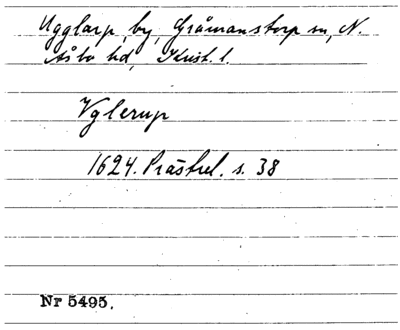 Ugglarp, by, Gråmanstorp sn, N.
Åsbo hd, Krist. l.
Vglerup
1624. Prästrel. s. 38
Nr 5495.